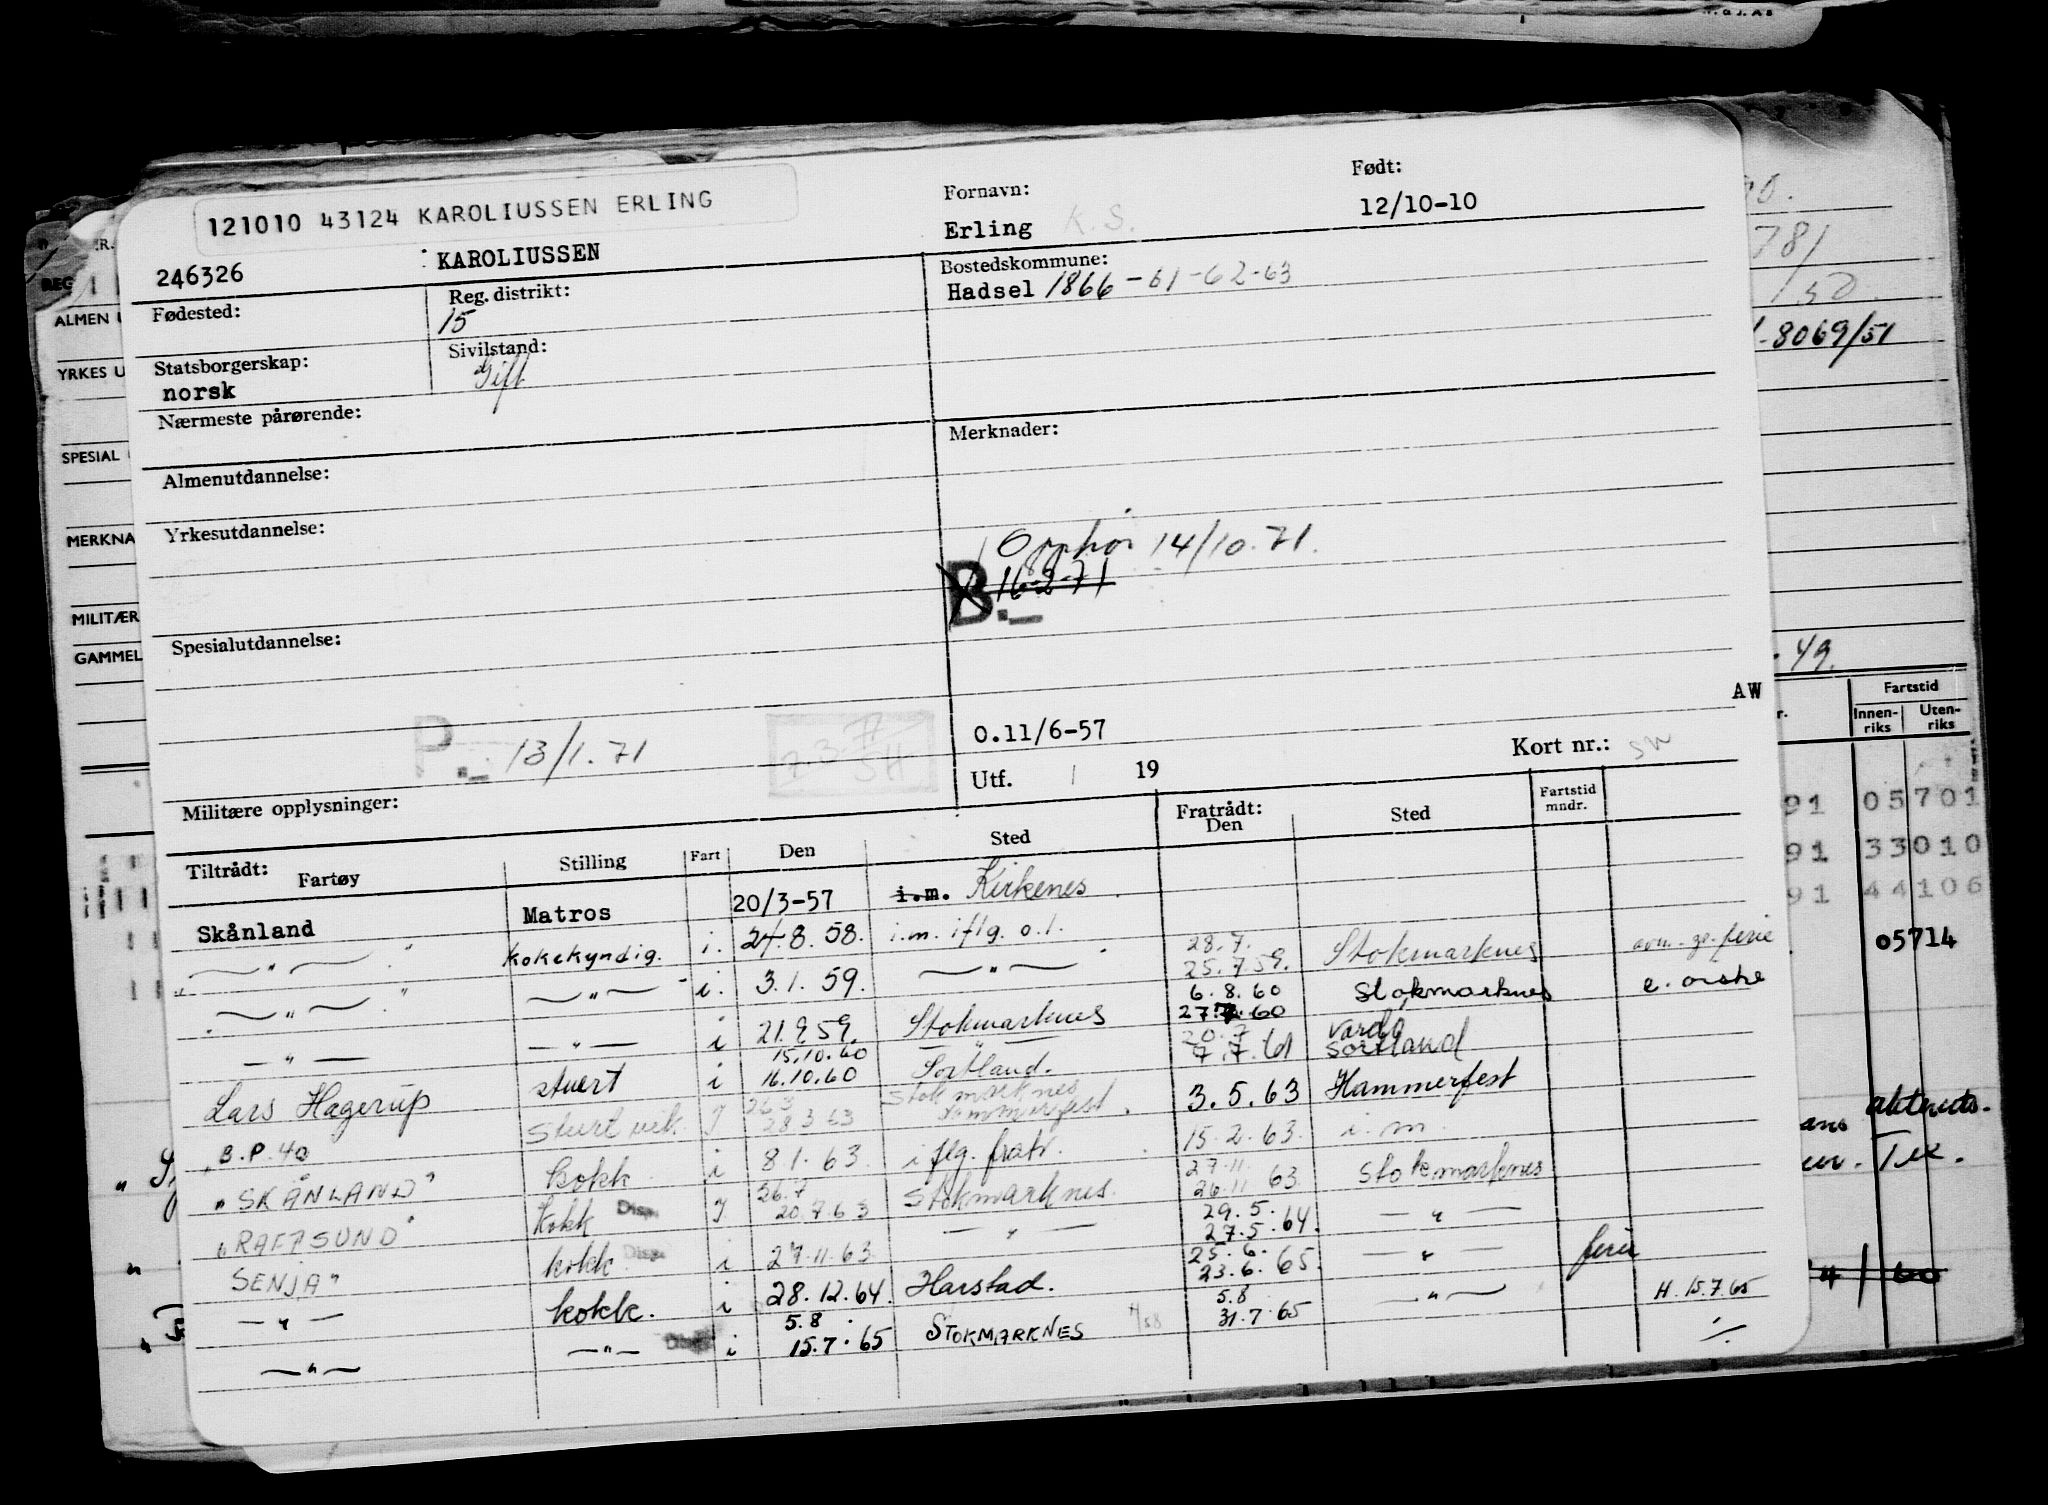 121010 43124 KAROLIUSSEN ERLING
246326 KAROLIUSSEN
Fornavn:
Erling K. S.
Født:
12/10-10
Fødested:
Reg. distrikt:
15
Bostedskommune:
Hadsel 1866-61-62-63
Statsborgerskap:
norsk
Sivilstand:
Gift
Nærmeste pårørende:
Merknader:
Almenutdannelse:
Yrkesutdannelse:
Opphør 14/10.71.
B.- 16-2-71
Spesialutdannelse:
AW
P.- 13/1.71
O.11/6-57
Utf. 19
Kort nr.:
Militære opplysninger:
Tiltrådt:
Fartøy Stilling Fart Den Sted
Fratrådt:
Den Sted
Fartstid
mndr.
Skånland Matros 20/3-57 i.m. Kirkenes
— " — kokekyndig. i. 24.8.58. i.m. iflg. o.l. 28.7. 25.7.59. Stokmarknes ferie
— " — — " — i. 3.1.59. — " — 6.8.60 27.7.60 Stokmarknes
— " — — " — i 21.9.59. Stokmarknes 20.7 7.7.61 Vardø Sortland
15.10.60 — " —
Lars Hagerup stuert i 16.10.60 Sortland. 3.5.63 Hammerfest
B.P. 40 Stuert vik. I 26.3 28.3.63 Stokmarknes Hammerfest. 15.2.63. i.m.
"SKÅNLAND" kokk i 8.1.63. iflg. fratr. 27.11. 26.11.63. Stokmarknes
"RAFTSUND" Kokk Disp. I 26.7 20.7.63 Stokmarknes. 29.5. 27.5.64. — " —
SENJA" kokk Disp. i 27.11.63. — " — 25.6. 23.6.65. — " — ferie
— " — kokk. i 28.12.64. Harstad. 5.8 31.7.65 — " — H. 15.7.65
— " — — " — i 5.8. 15.7.65 STOKMARKNES
REG
ALMEN U
YRKES U
SPESIAL
MERKNA
MILITÆR
GAMMEL
8069/51
49.
Fartstid
Innen-
riks
Uten-
riks
91 05701
91 33010
91 44106
05714